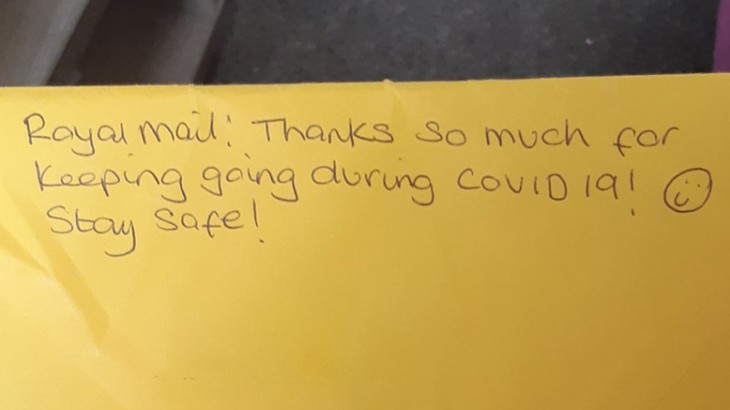 Royal mail: Thanks so much for
Keeping going during COVID 19! ☺
Stay safe!